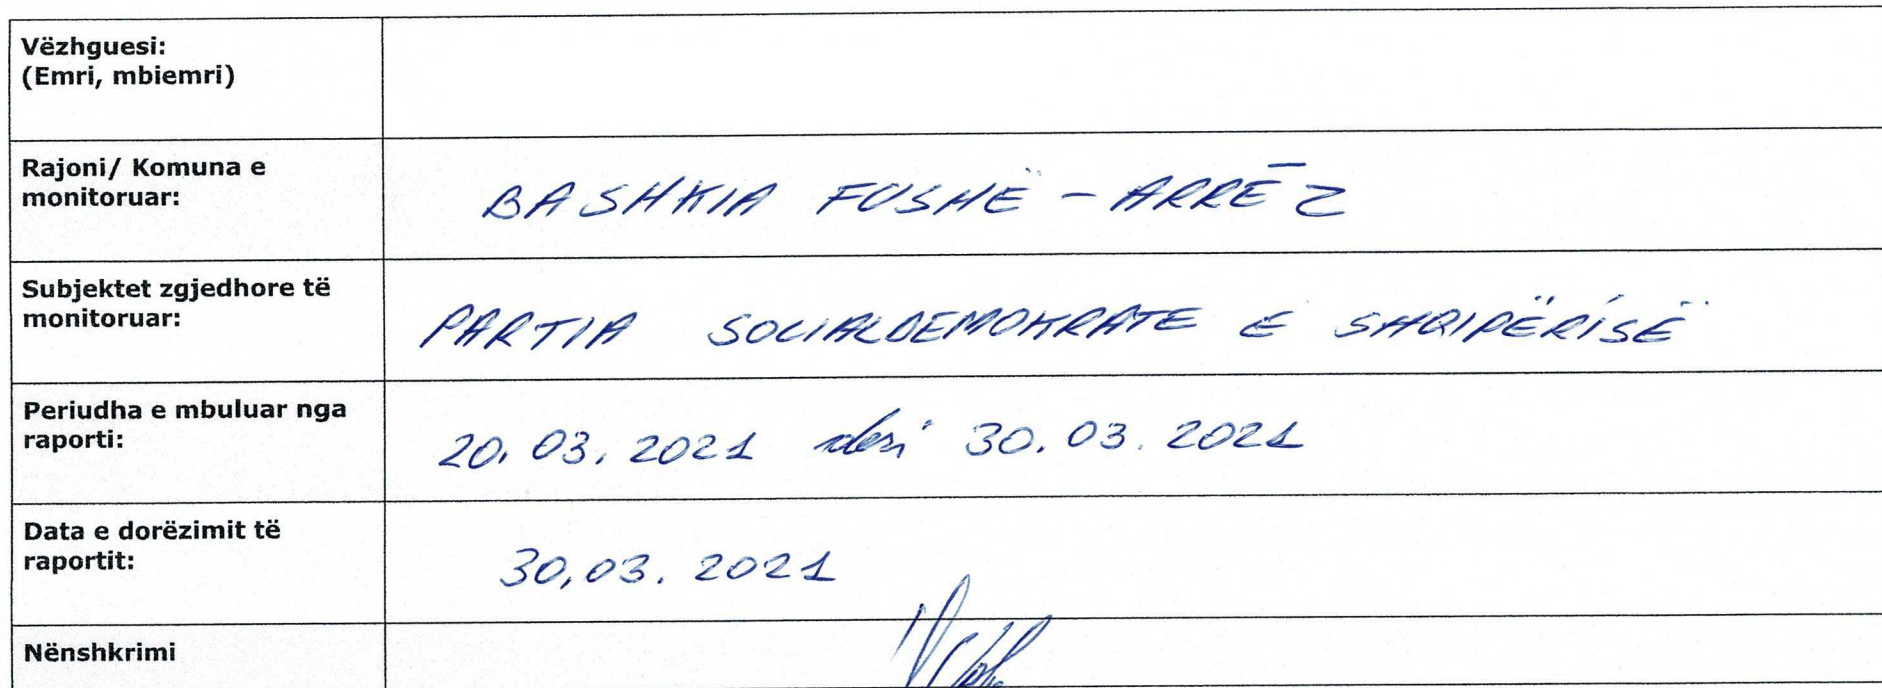 Vëzhguesi:
(Emri, mbiemri)
Rajoni/ Komuna e
monitoruar:
BASHKIA FUSHË - ARRËZ
Subjektet zgjedhore të
monitoruar:
PARTIA SOCIALDEMOKRATE E SHQIPËRISË
Periudha e mbuluar nga
raporti:
20.03.2021 deri 30.03.2021
Data e dorëzimit të
raportit:
30.03.2021
Nënshkrimi